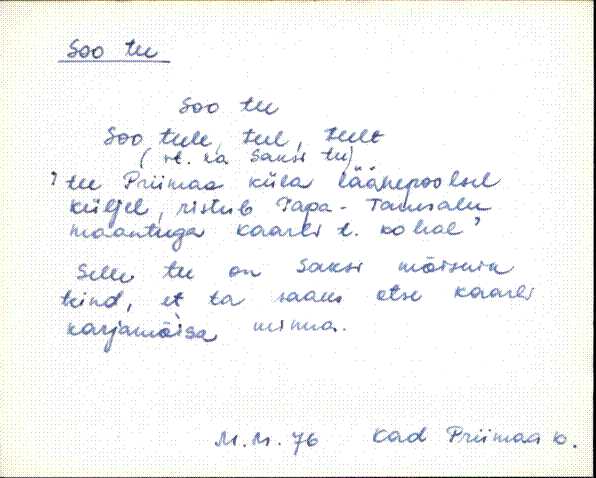 Soo tee
Soo tee
Soo teele, teel, teelt
(vt. ka Saksi tee)
'tee Priimaa küla läänepoolsel
küljel, ristub Tapa-Tamsalu
maanteega Kaarli t. kohal'
Selle tee on Saksi mõisnik
teind, et ta saaks otse Kaarli
karjamõisa minna.
M.M. 76 Kad Priimaa k.